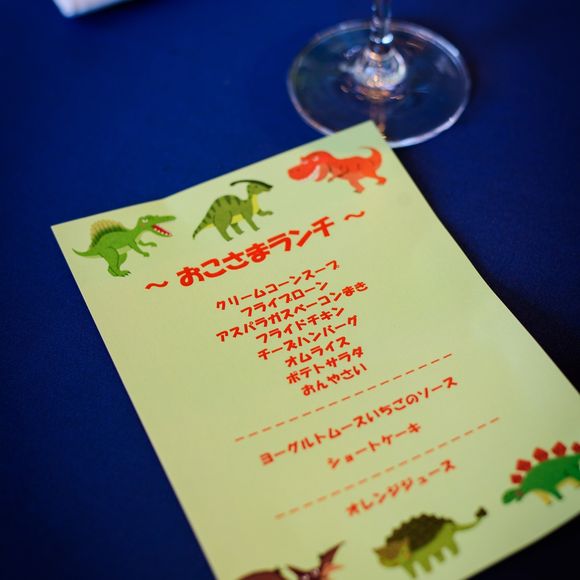 ～ おこさまランチ ～
クリームコーンスープ
フライプローン
アスパラガスベーコンまき
フライドチキン
チーズハンバーグ
オムライス
ポテトサラダ
おんやさい
ヨーグルトムースいちごのソース
ショートケーキ
オレンジジュース